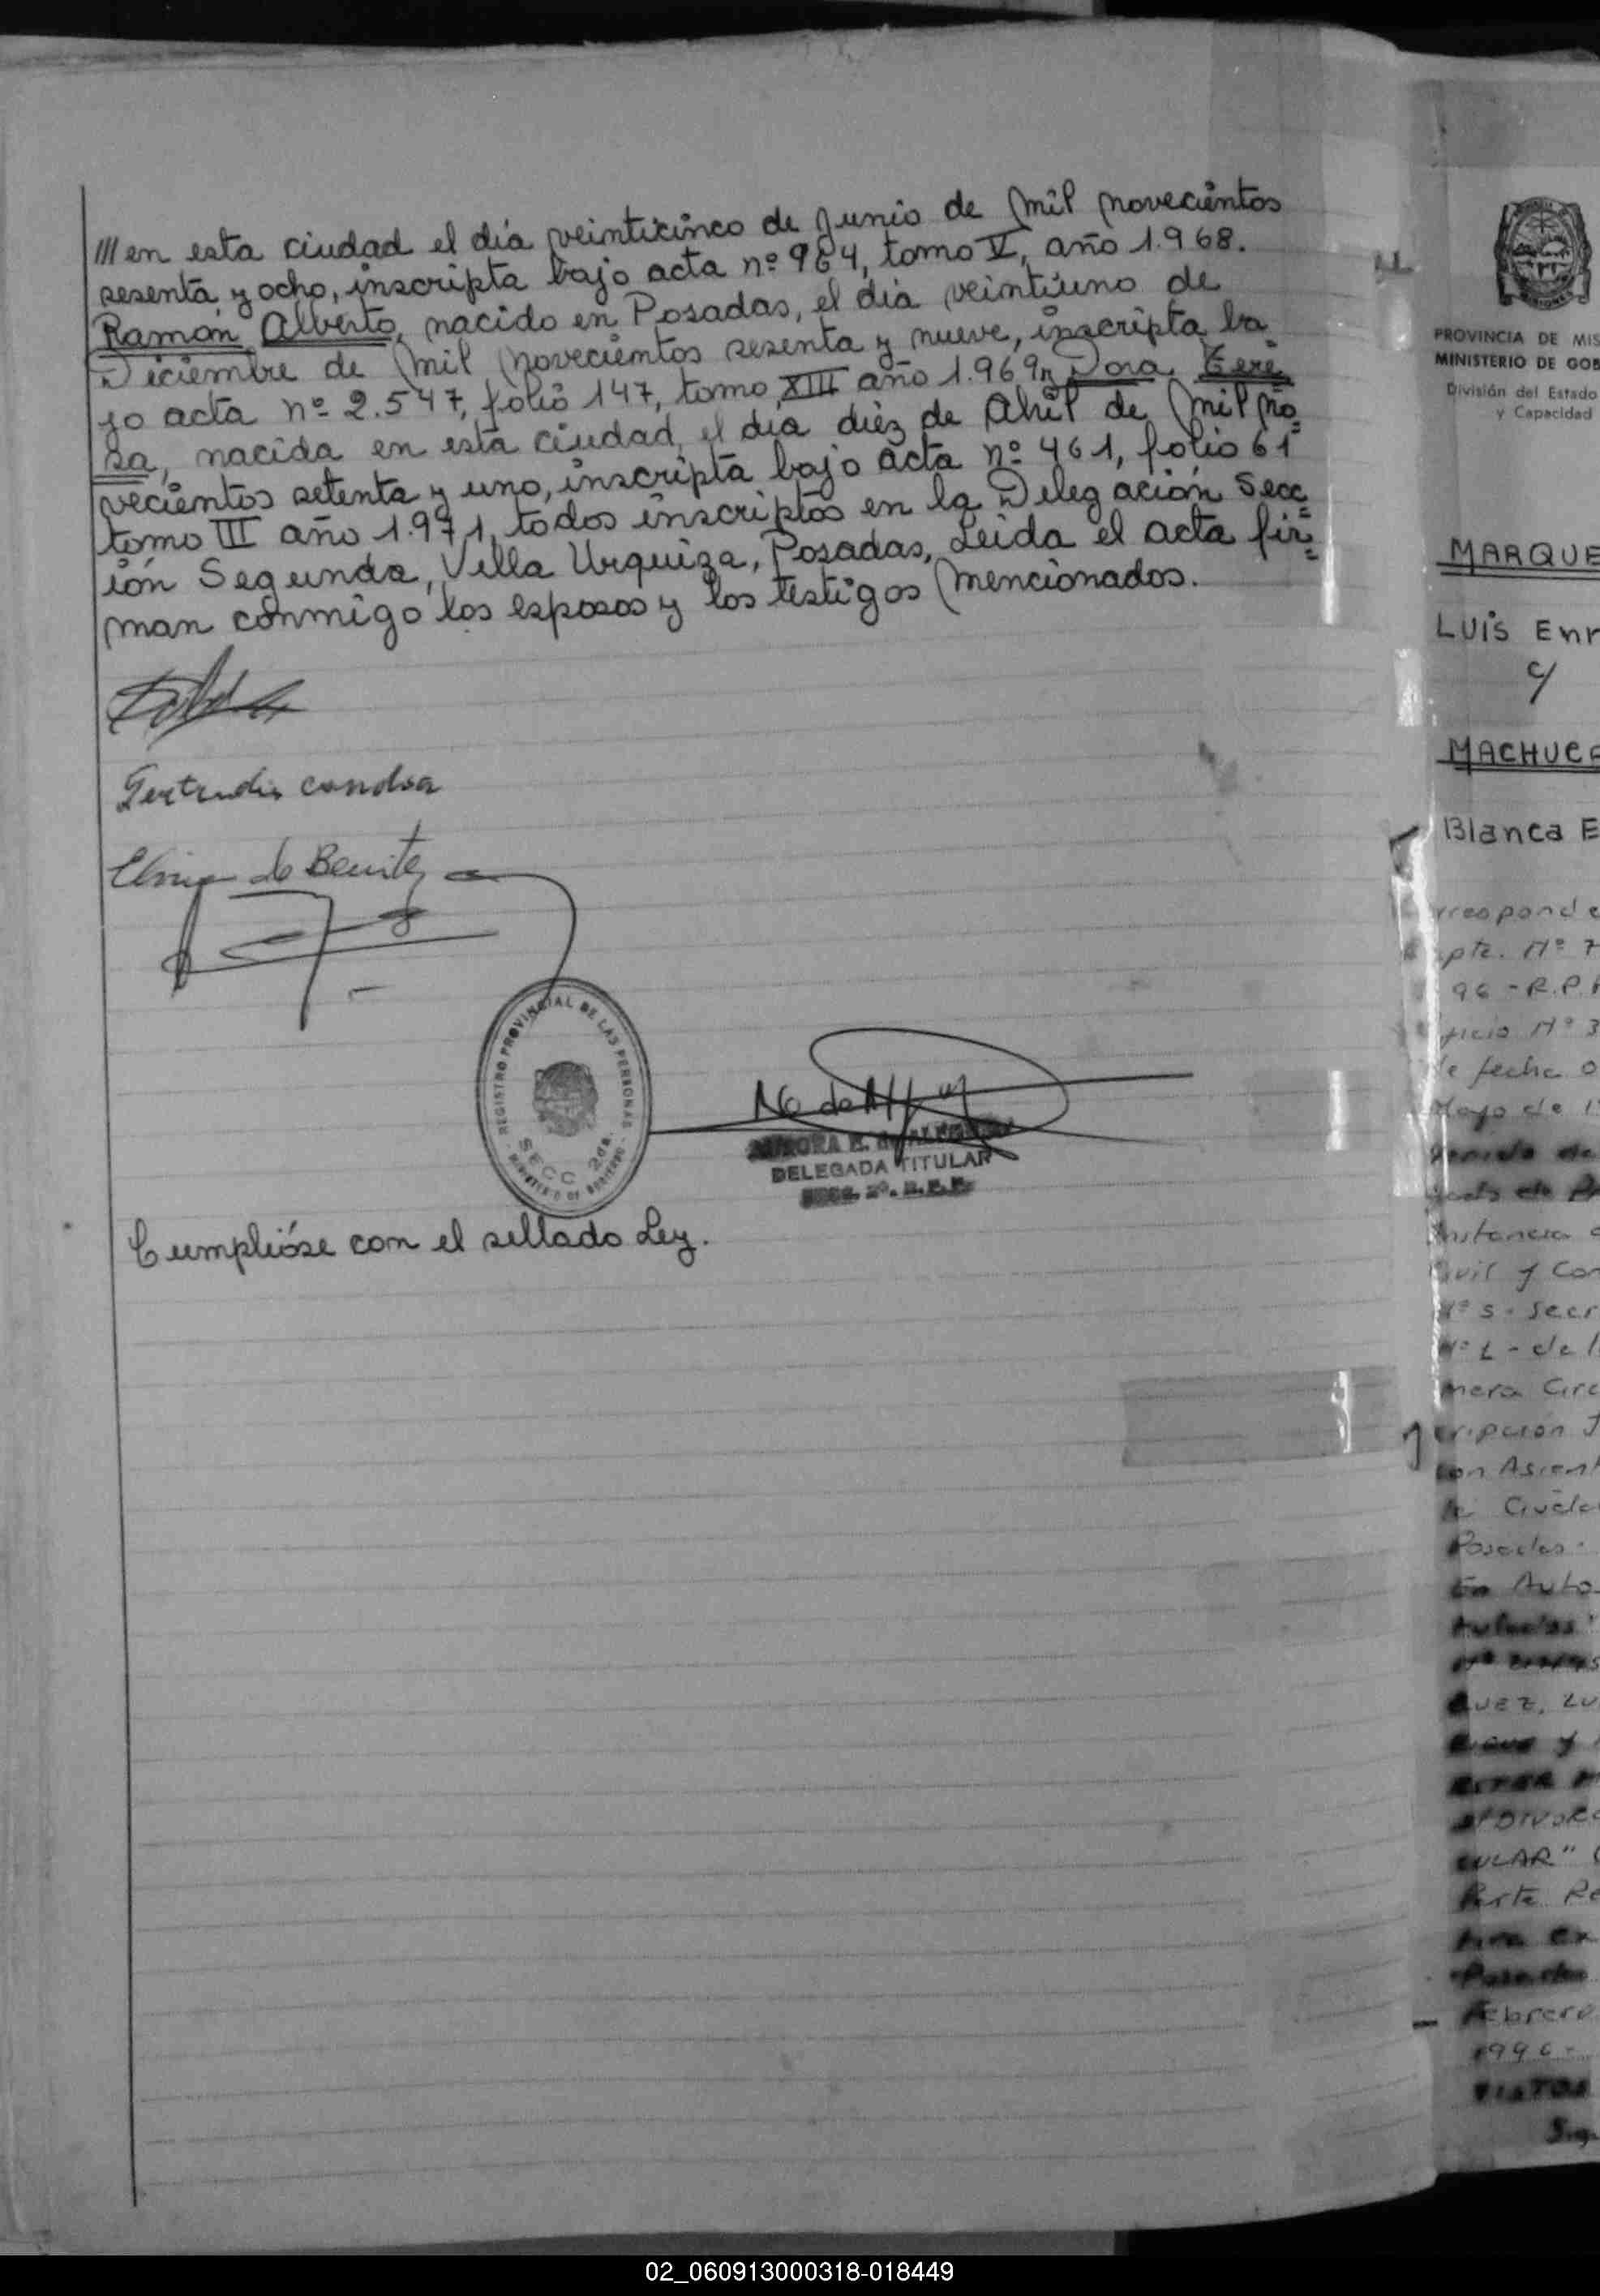 /// en esta ciudad el día veinticinco de Junio de mil novecientos
sesenta y ocho, inscripta bajo acta nº 964, tomo V, año 1.968.
Ramón Alberto, nacido en Posadas, el día veintiuno de
Diciembre de mil novecientos sesenta y nueve, inscripta ba
jo acta nº 2.547, folio 147, tomo XIII año 1.969 y Dora Tere
sa, nacida en esta ciudad, el día diéz de Abril de mil no
vecientos setenta y uno, inscripta bajo acta nº 461, folio 61
tomo III año 1.971, todos inscriptos en la Delegación Secc
ión Segunda, Villa Urquiza, Posadas, Leida el acta fir
man conmigo los esposos y los testigos mencionados.
Gertrudis
de Benitez
REGISTRO PROVINCIAL DE LAS PERSONAS
SECC 2da.
MINISTERIO DE GOBIERNO
AURORA
DELEGADA TITULAR
SECC. 2º. R.P.P.
Cumplióse con el sellado Ley.
PROVINCIA DE MIS
MINISTERIO DE GOB
División del Estado
y Capacidad
MARQUE
LUIS Enr
c/
MACHUCA
Blanca E
rresponde
pte. Nº 7
96 - R.P.P
ficio Nº 3
de fecha 0
Mayo de 1
Instancia
Civil y Com
Nº 5 - Secr
Nº 1 - de l
mera Circ
cripción J
con Asient
la Ciuda
Posadas.
En Auto
QUEZ, LU
DIVORC
CULAR"
Parte Re
Febrero
1996 -
VISTOS
02_060913000318-018449